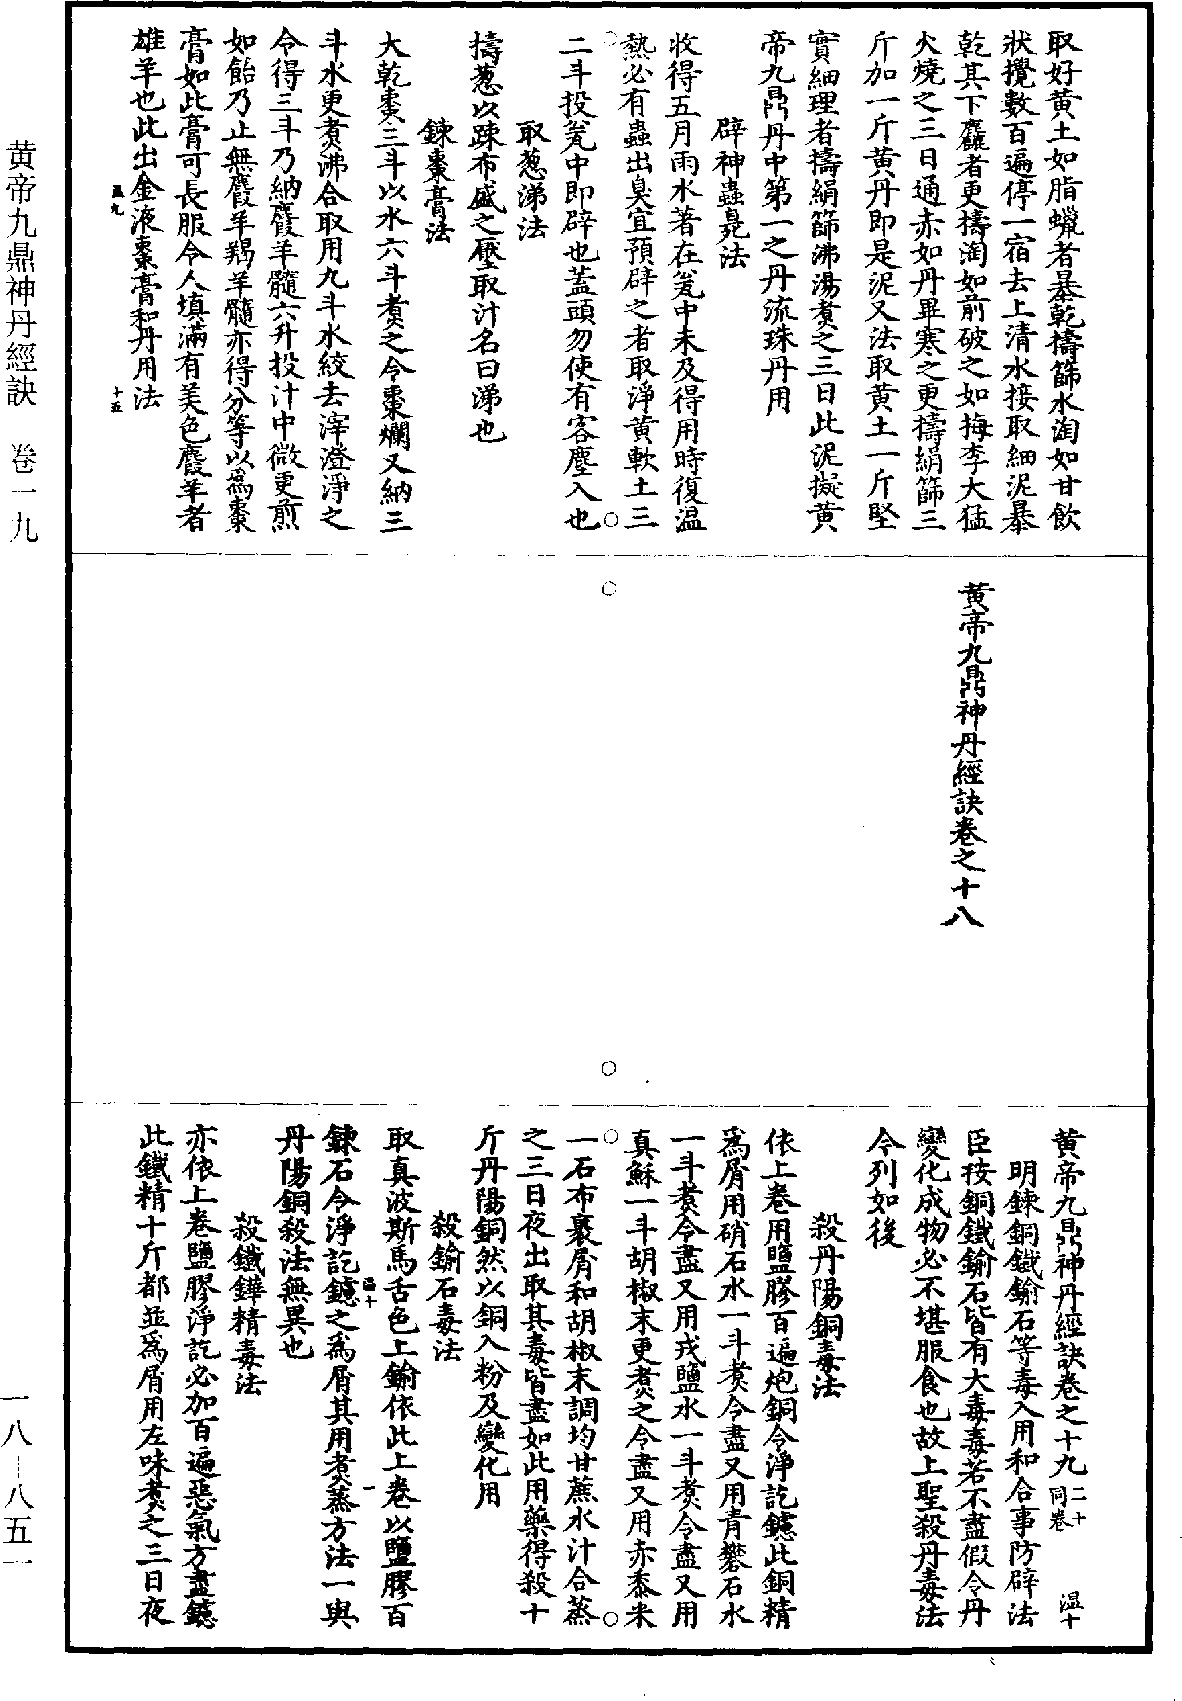 黄帝九鼎神丹經訣 卷一九
一八―八五一
取好黄土如脂蠟者暴乾擣篩水淘如甘飲
狀攪數百遍停一宿去上清水接取細泥暴
乾其下麤者更擣淘如前破之如梅李大猛
火燒之三日通赤如丹畢寒之更擣絹篩三
斤加一斤黄丹即是泥又法取黄土一斤堅
實細理者擣絹篩沸湯煮之三日此泥擬黄
帝九鼎丹中第一之丹流珠丹用
辟神蟲毚法
收得五月雨水著在瓮中未及得用時復温
熱必有蟲出臭宜預辟之者取淨黄軟土三
二斗投瓮中即辟也蓋頭勿使有客塵入也
取葱涕法
擣葱以踈布盛之壓取汁名曰涕也
鍊棗膏法
大乾棗三斗以水六斗煮之令棗爛又納三
斗水更煮沸合取用九斗水絞去滓澄淨之
令得三斗乃納麢羊髓六升投汁中微更煎
如飴乃止無麢羊羯羊髓亦得分等以爲棗
膏如此膏可長服令人填滿有美色麢羊者
雄羊也此出金液棗膏和丹用法
温九
十五
黄帝九鼎神丹經訣卷之十八
黄帝九鼎神丹經訣卷之十九 二十同卷 温十
明鍊銅鐵鍮石等毒入用和合事防辟法
臣按銅鐵鍮石皆有大毒毒若不盡假令丹
變化成物必不堪服食也故上聖殺丹毒法
令列如後
殺丹陽銅毒法
依上卷用鹽膠百遍炮銅令淨訖鑢此銅精
爲屑用硝石水一斗煮令盡又用青礬石水
一斗煮令盡又用戎鹽水一斗煮令盡又用
真穌一斗胡椒末更煮之令盡又用赤黍米
一石布裹屑和胡椒末調均甘蔗水汁合蒸
之三日夜出取其毒皆盡如此用藥得殺十
斤丹陽銅然以銅入粉及變化用
殺鍮石毒法
取真波斯馬舌色上鍮依此上卷以鹽膠百
温十
一
鍊石令淨訖鑢之爲屑其用煮蒸方法一與
丹陽銅殺法無異也
殺鐵鏵精毒法
亦依上卷鹽膠淨訖必加百遍惡氣方盡鑢
此鐵精十斤都並爲屑用左味煮之三日夜